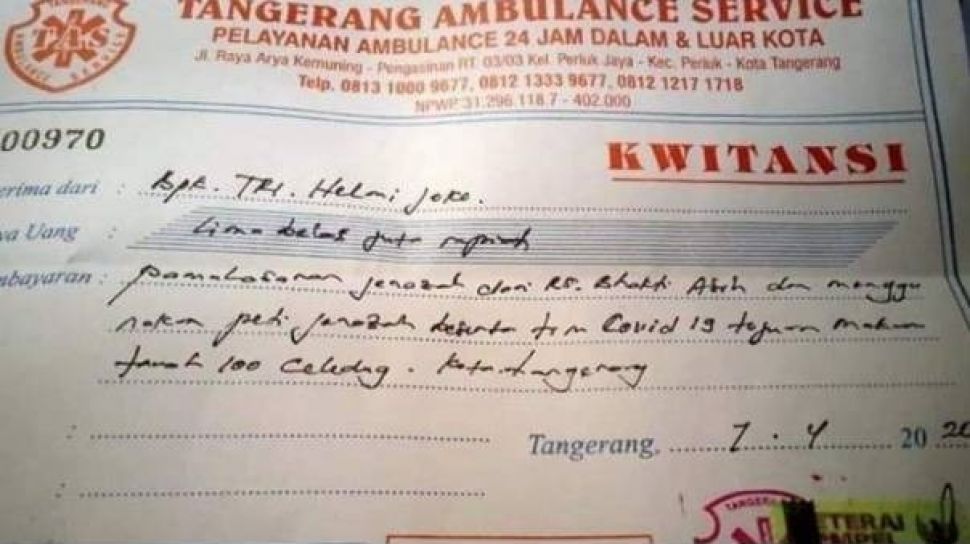 TANGERANG AMBULANCE SERVICE
PELAYANAN AMBULANCE 24 JAM DALAM & LUAR KOTA
Jl. Raya Arya Kemuning - Pengasinan RT. 03/03 Kel. Periuk Jaya - Kec. Periuk - Kota Tangerang
Telp. 0813 1000 9677, 0812 1333 9677, 0812 1217 1718
NPWP 31.296.118.7 - 402.000
TAS
00970
KWITANSI
erima dari : Bpk. TRI. Helmi Joko.
wa Uang : Lima belas juta rupiah
mbayaran : pamulasaran jenazah dari RS. Bhakti Asih dan menggu
nakan peti jenazah beserta tim Covid 19 tujuan makam
tanah 100 Ciledug. Kota tangerang
Tangerang, 7 . 4 20 20
TANGER
ETERAI
MPEL